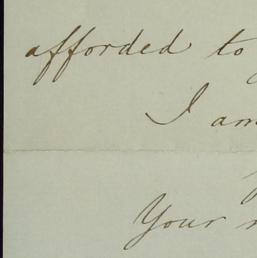 afforded to
I am
Your